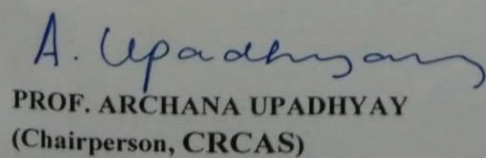 A. Upadhyay
PROF. ARCHANA UPADHYAY
(Chairperson, CRCAS)